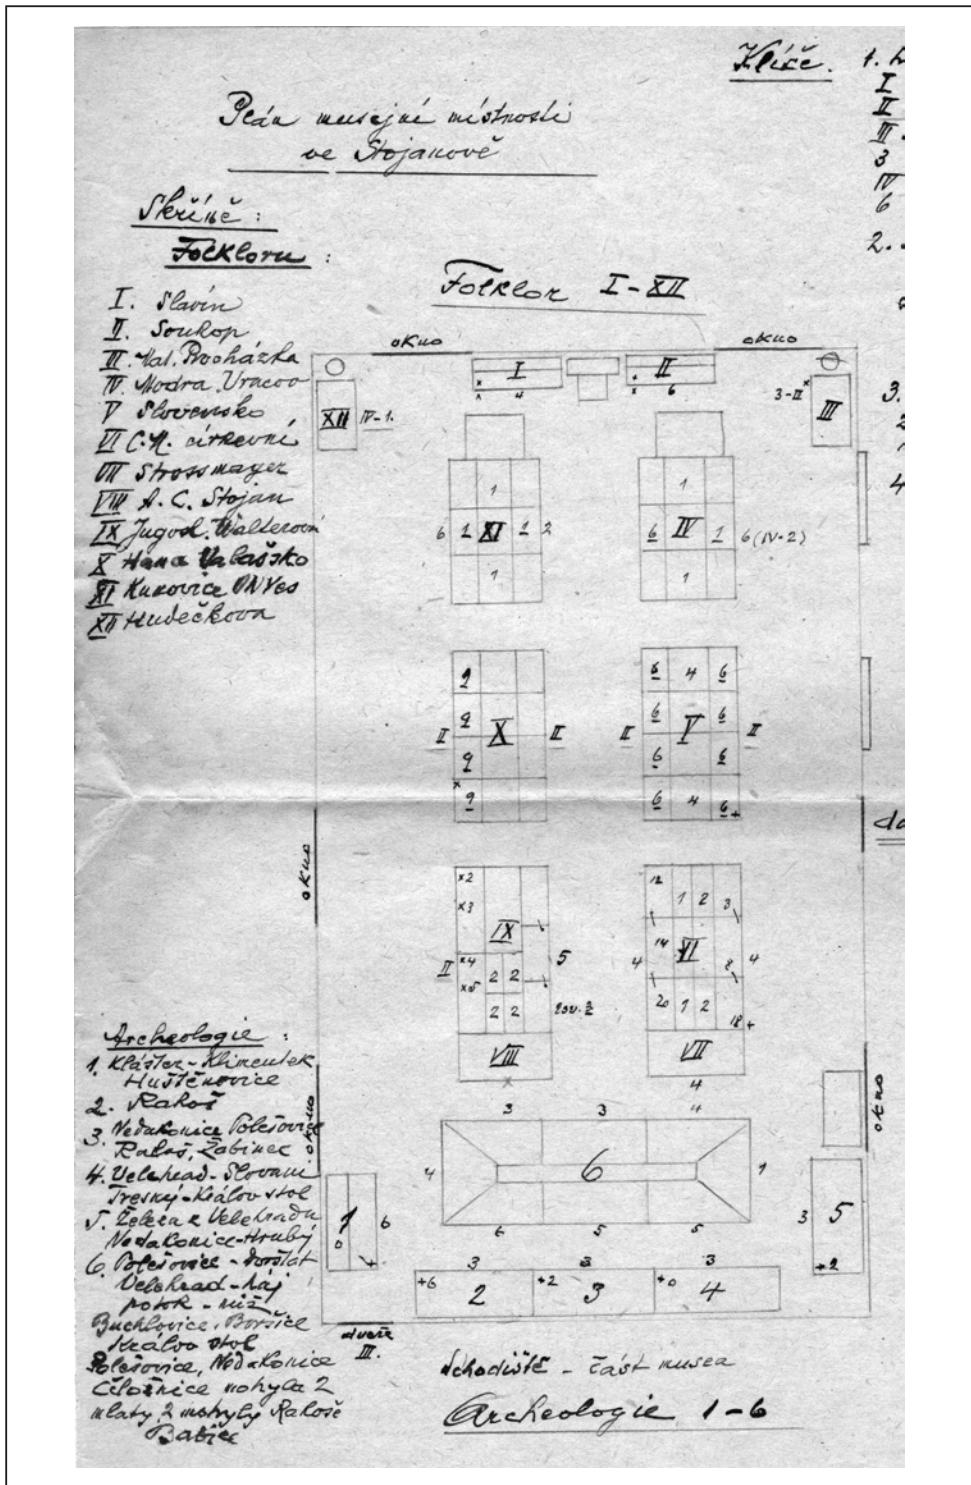 Klíče.
1.
I
II
III.
3
IV
6
2.
3.
2
4
Plán musejné místnosti
ve Stojanově
Skříně :
Folkloru :
I. Slavín
II. Soukop
III. Mat. Procházka
IV. Modra. Vracov
V Slovensko
VI C.M. církevní
VII Strossmayer
VIII A. C. Stojan
IX Jugosl. Walterová
X Hana Valašsko
XI Kunovice
XII Hudečkova
Folklor I-XII
okno
okno
I
x x 4
II
x x 6
XII IV-1.
3-II x
III
1
6 1 XI 1 2
1
1
6 IV 1 6 (IV-2)
1
9
9
II X II
9
x 9
8 4 6
6 6
II V II
6 6
6 4 6 +
okno
x2
x3
IX
II x4 5
x5 2 2
2 2
VIII
x
12 1 2 3
4 14 VI 8 4
20 1 2 18+
VII
4
okno
okno
Archeologie :
1. Klášter-Klimentek
Huštěnovice
2. Rakoš
3. Nedakonice Polešovice
Rakoš, Žabinec
4. Velehrad-Slovani
Tresný-Králov stol
5. Železa z Velehradu
Nedakonice-Hrubý
6. Polešovice -
Velehrad-háj
potok - niž
Buchlovice, Boršice
Králov stol
Polešovice, Nedakonice
Čeložnice mohyla 2
mlaty 2 mohyly Rakoše
Babice
3 3 4
4 6 1
6 5 5
1 6
0 +
3 5
+2
3 3 3
+6 2 +2 3 +0 4
dveře
III.
schodiště - část musea
Archeologie 1-6